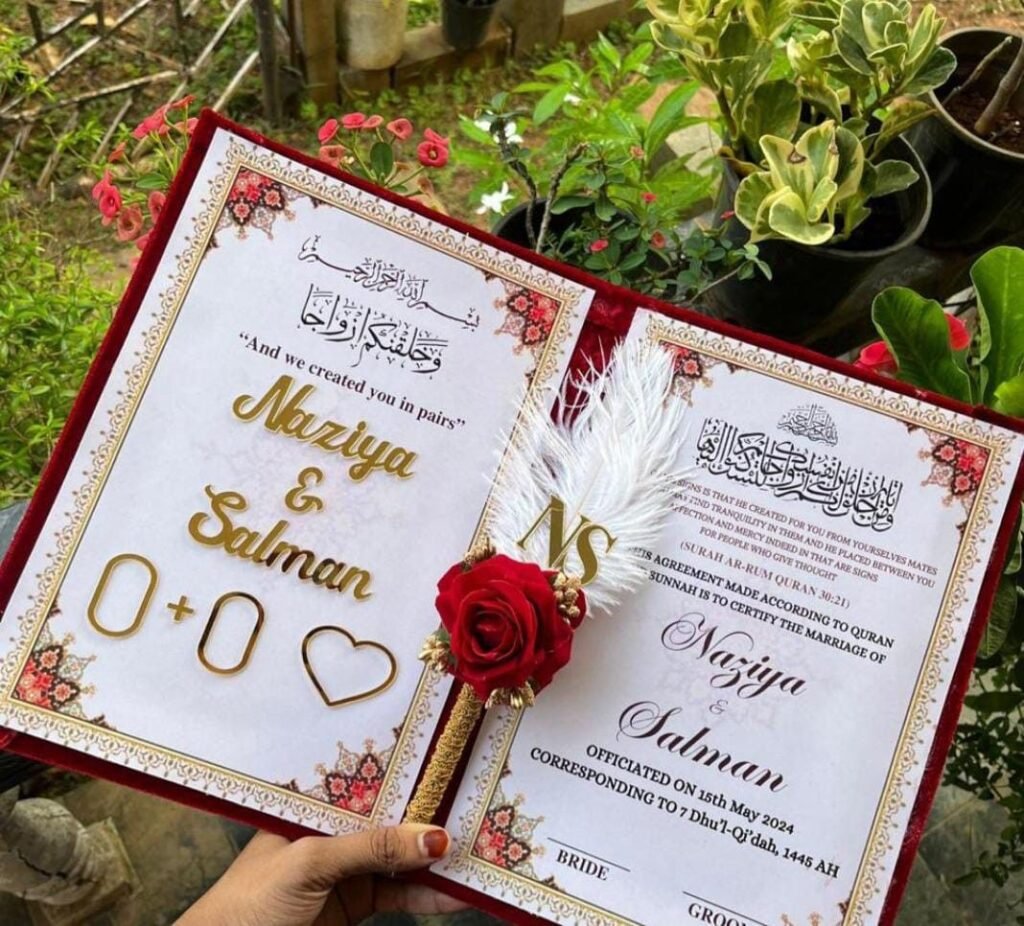 بسم الله الرحمن الرحيم
وَخَلَقْنٰكُمْ اَزْوَاجًا
“And we created you in pairs”
Naziya
&
Salman
+
NS
SIGNS IS THAT HE CREATED FOR YOU FROM YOURSELVES MATES
FIND TRANQUILITY IN THEM AND HE PLACED BETWEEN YOU
AFFECTION AND MERCY INDEED IN THAT ARE SIGNS
FOR PEOPLE WHO GIVE THOUGHT
(SURAH AR-RUM QURAN 30:21)
AGREEMENT MADE ACCORDING TO QURAN
SUNNAH IS TO CERTIFY THE MARRIAGE OF
Naziya
&
Salman
OFFICIATED ON 15th May 2024
CORRESPONDING TO 7 Dhu'l-Qi'dah, 1445 AH
BRIDE
GROOM